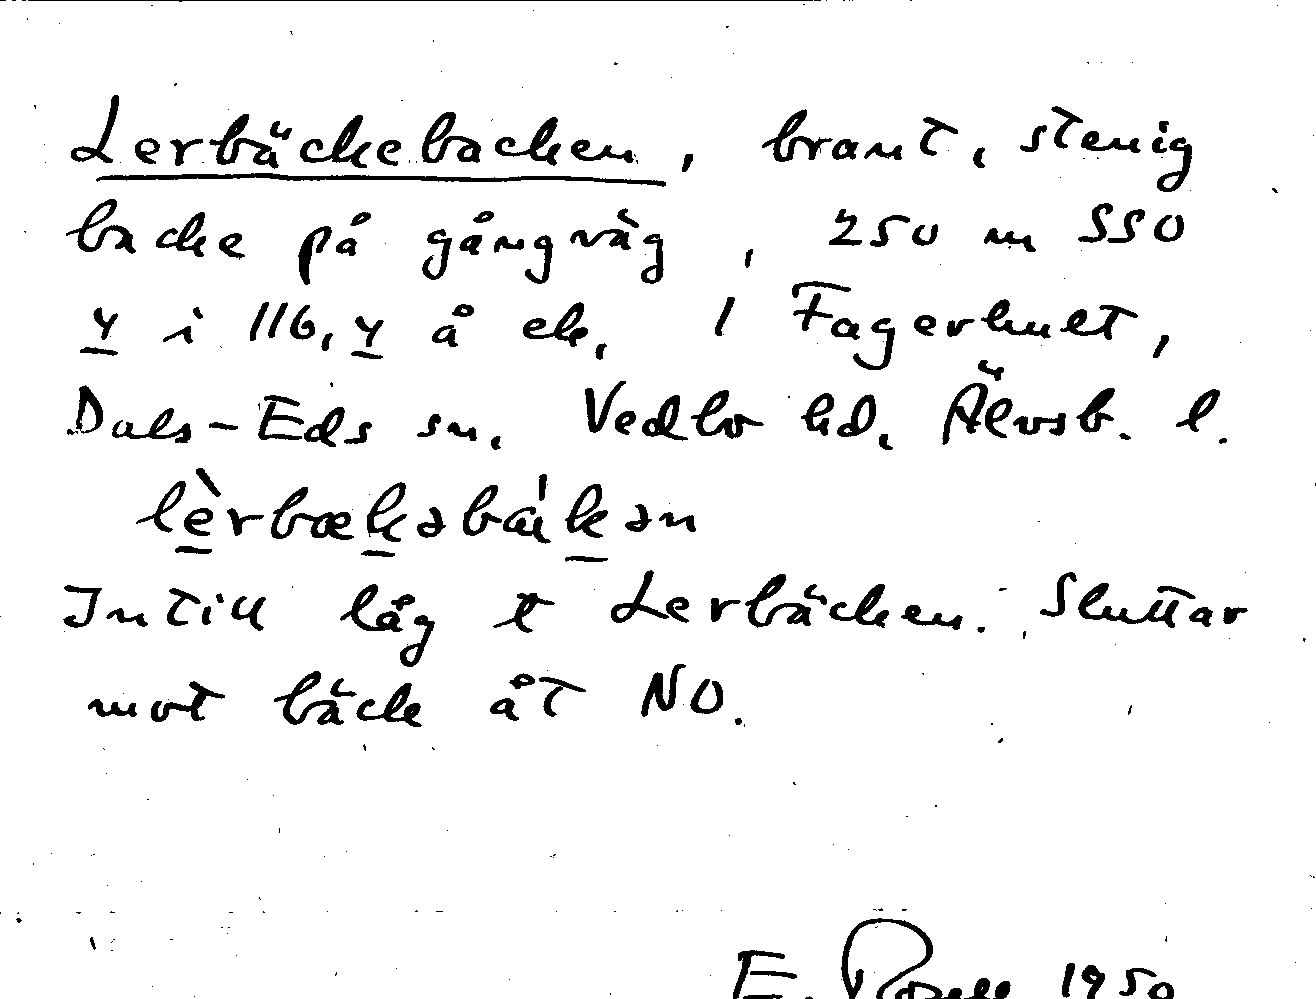 Lerbäckebacken, brant, stenig
backe på gångväg, 250 m SSO
y i 116, y å ek, i Fagerhult,
Dals-Eds sn, Vedbo hd, Älvsb. l.
lèrbækəbák ən
Intill låg t Lerbäcken. Sluttar
mot bäck åt NO.
E. 1950